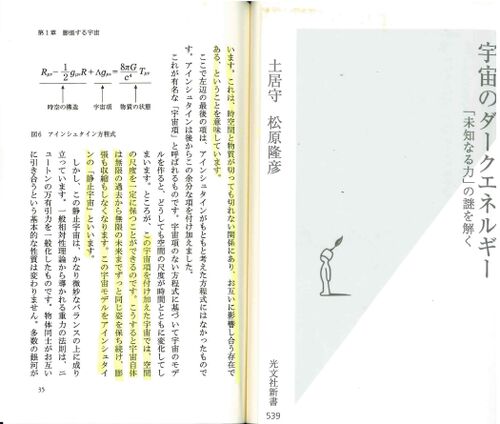 第1章 膨張する宇宙
います。これは、時空間と物質が切っても切れない関係にあり、お互いに影響し合う存在で
ある、ということを意味しています。
ここで左辺の最後の項は、アインシュタインがもともと考えた方程式にはなかったもので
す。アインシュタインは後からこの余分な項を付け加えました。
これが有名な「宇宙項」と呼ばれるものです。宇宙項のない方程式に基づいて宇宙のモデ
ルを作ると、どうしても空間の尺度が時間とともに変化してし
まいます。ところが、この宇宙項を付け加えた宇宙では、空間
の尺度を一定に保つことができるのです。こうすると宇宙自体
は無限の過去から無限の未来までずっと同じ姿を保ち続け、膨
張も収縮もしなくなります。この宇宙モデルをアインシュタイ
ンの「静止宇宙」といいます。
しかし、この静止宇宙は、かなり微妙なバランスの上に成り
立っています。一般相対性理論から導かれる重力の法則は、ニ
ュートンの万有引力を一般化したものです。物体同士がお互い
に引き合うという基本的な性質は変わりません。多数の銀河が
Rμν − 1/2 gμνR + Λgμν = 8πG/c⁴ Tμν
時空の構造 宇宙項 物質の状態
図6 アインシュタイン方程式
35
宇宙のダークエネルギー
「未知なる力」の謎を解く
土居守 松原隆彦
光文社新書
539